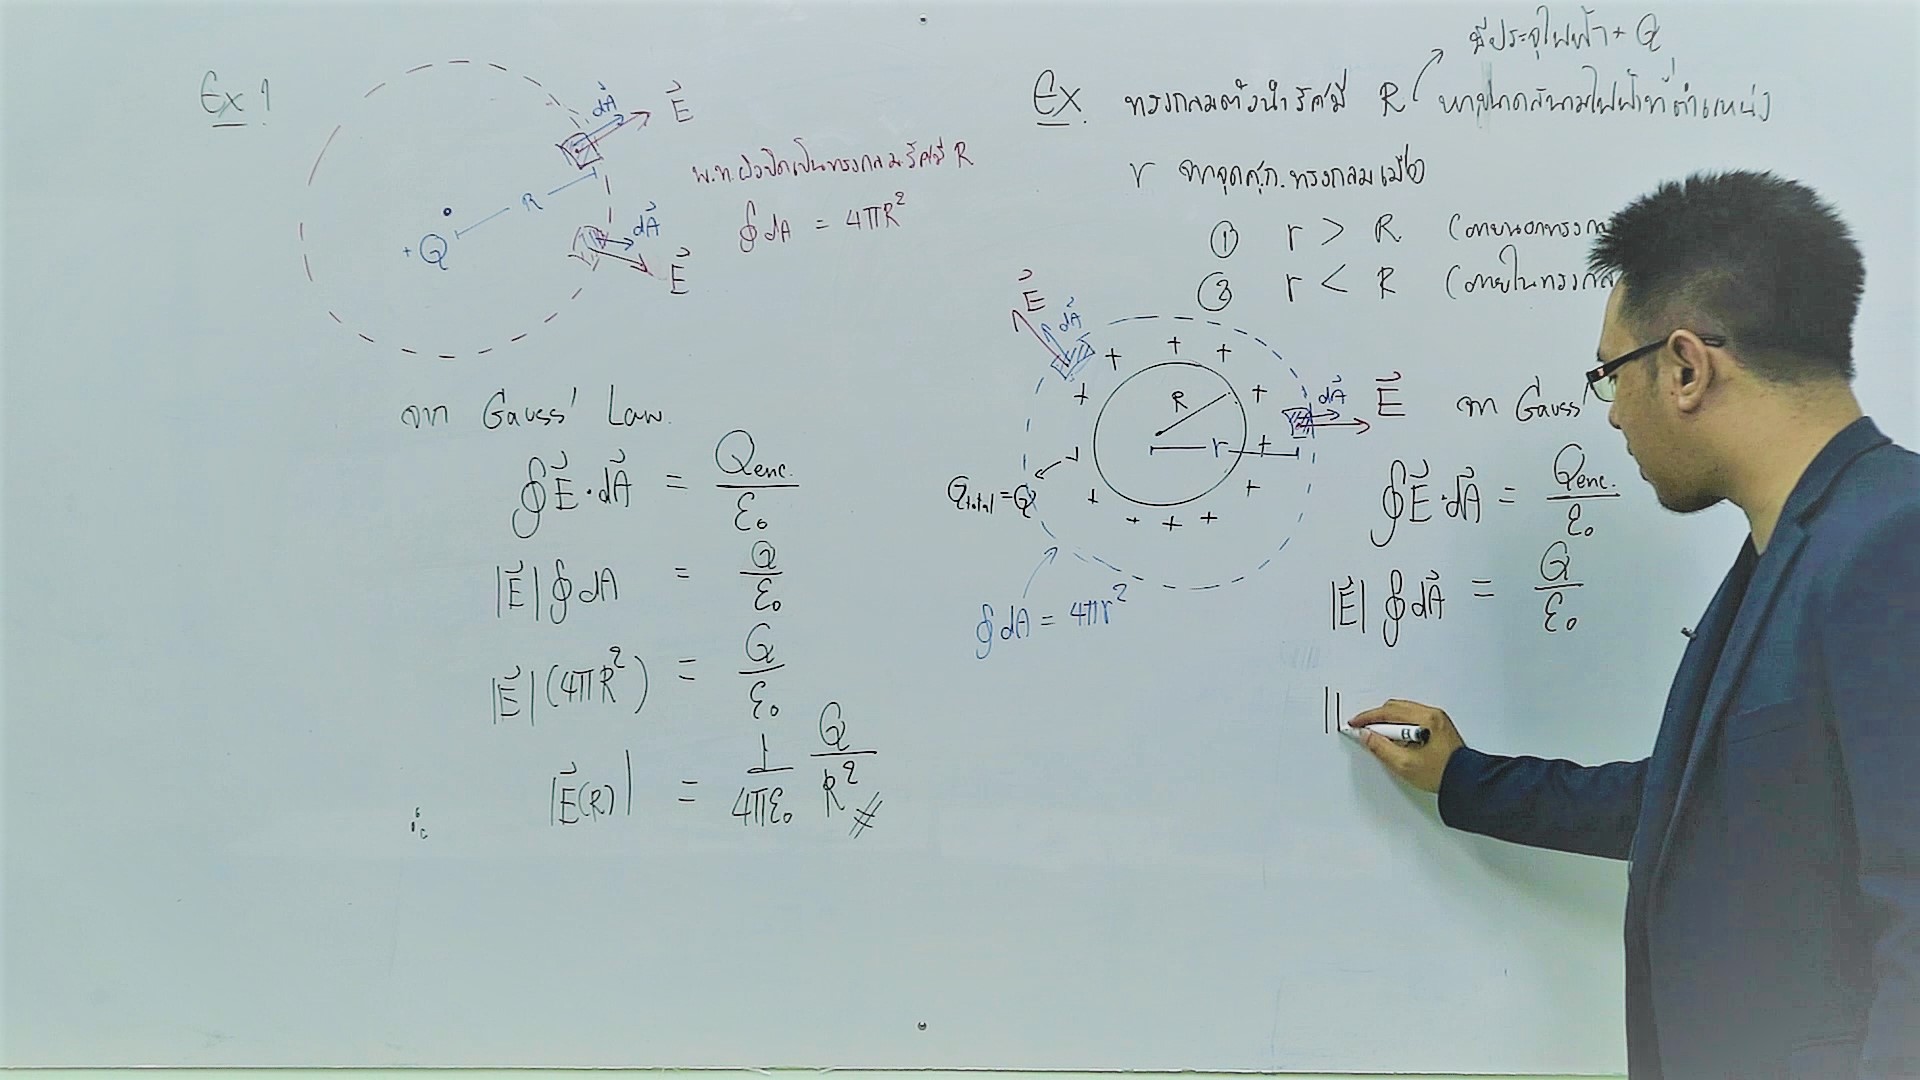 Ex 1
dA⃗
E⃗
R
+Q
dA⃗
E⃗
พ.ท.ผิวปิดเป็นทรงกลมรัศมี R
∮dA = 4πR²
จาก Gauss' Law.
∮E⃗·dA⃗ = Qenc./ε₀
|E⃗|∮dA = Q/ε₀
|E⃗|(4πR²) = Q/ε₀
|E⃗(R)| = 1/4πε₀ Q/R² #
มีประจุไฟฟ้า + Q
Ex. ทรงกลมตัวนำรัศมี R หาขนาดสนามไฟฟ้าที่ตำแหน่ง
r จากจุดศ.ก.ทรงกลมเมื่อ
① r > R (ภายนอกทรงก
② r < R (ภายในทรงกล
E⃗
dA⃗
+ + + + + + + + + + +
R
r
dA⃗
E⃗
Qtotal = Q
∮dA = 4πr²
จาก Gauss'
∮E⃗·dA⃗ = Qenc./ε₀
|E⃗|∮dA⃗ = Q/ε₀